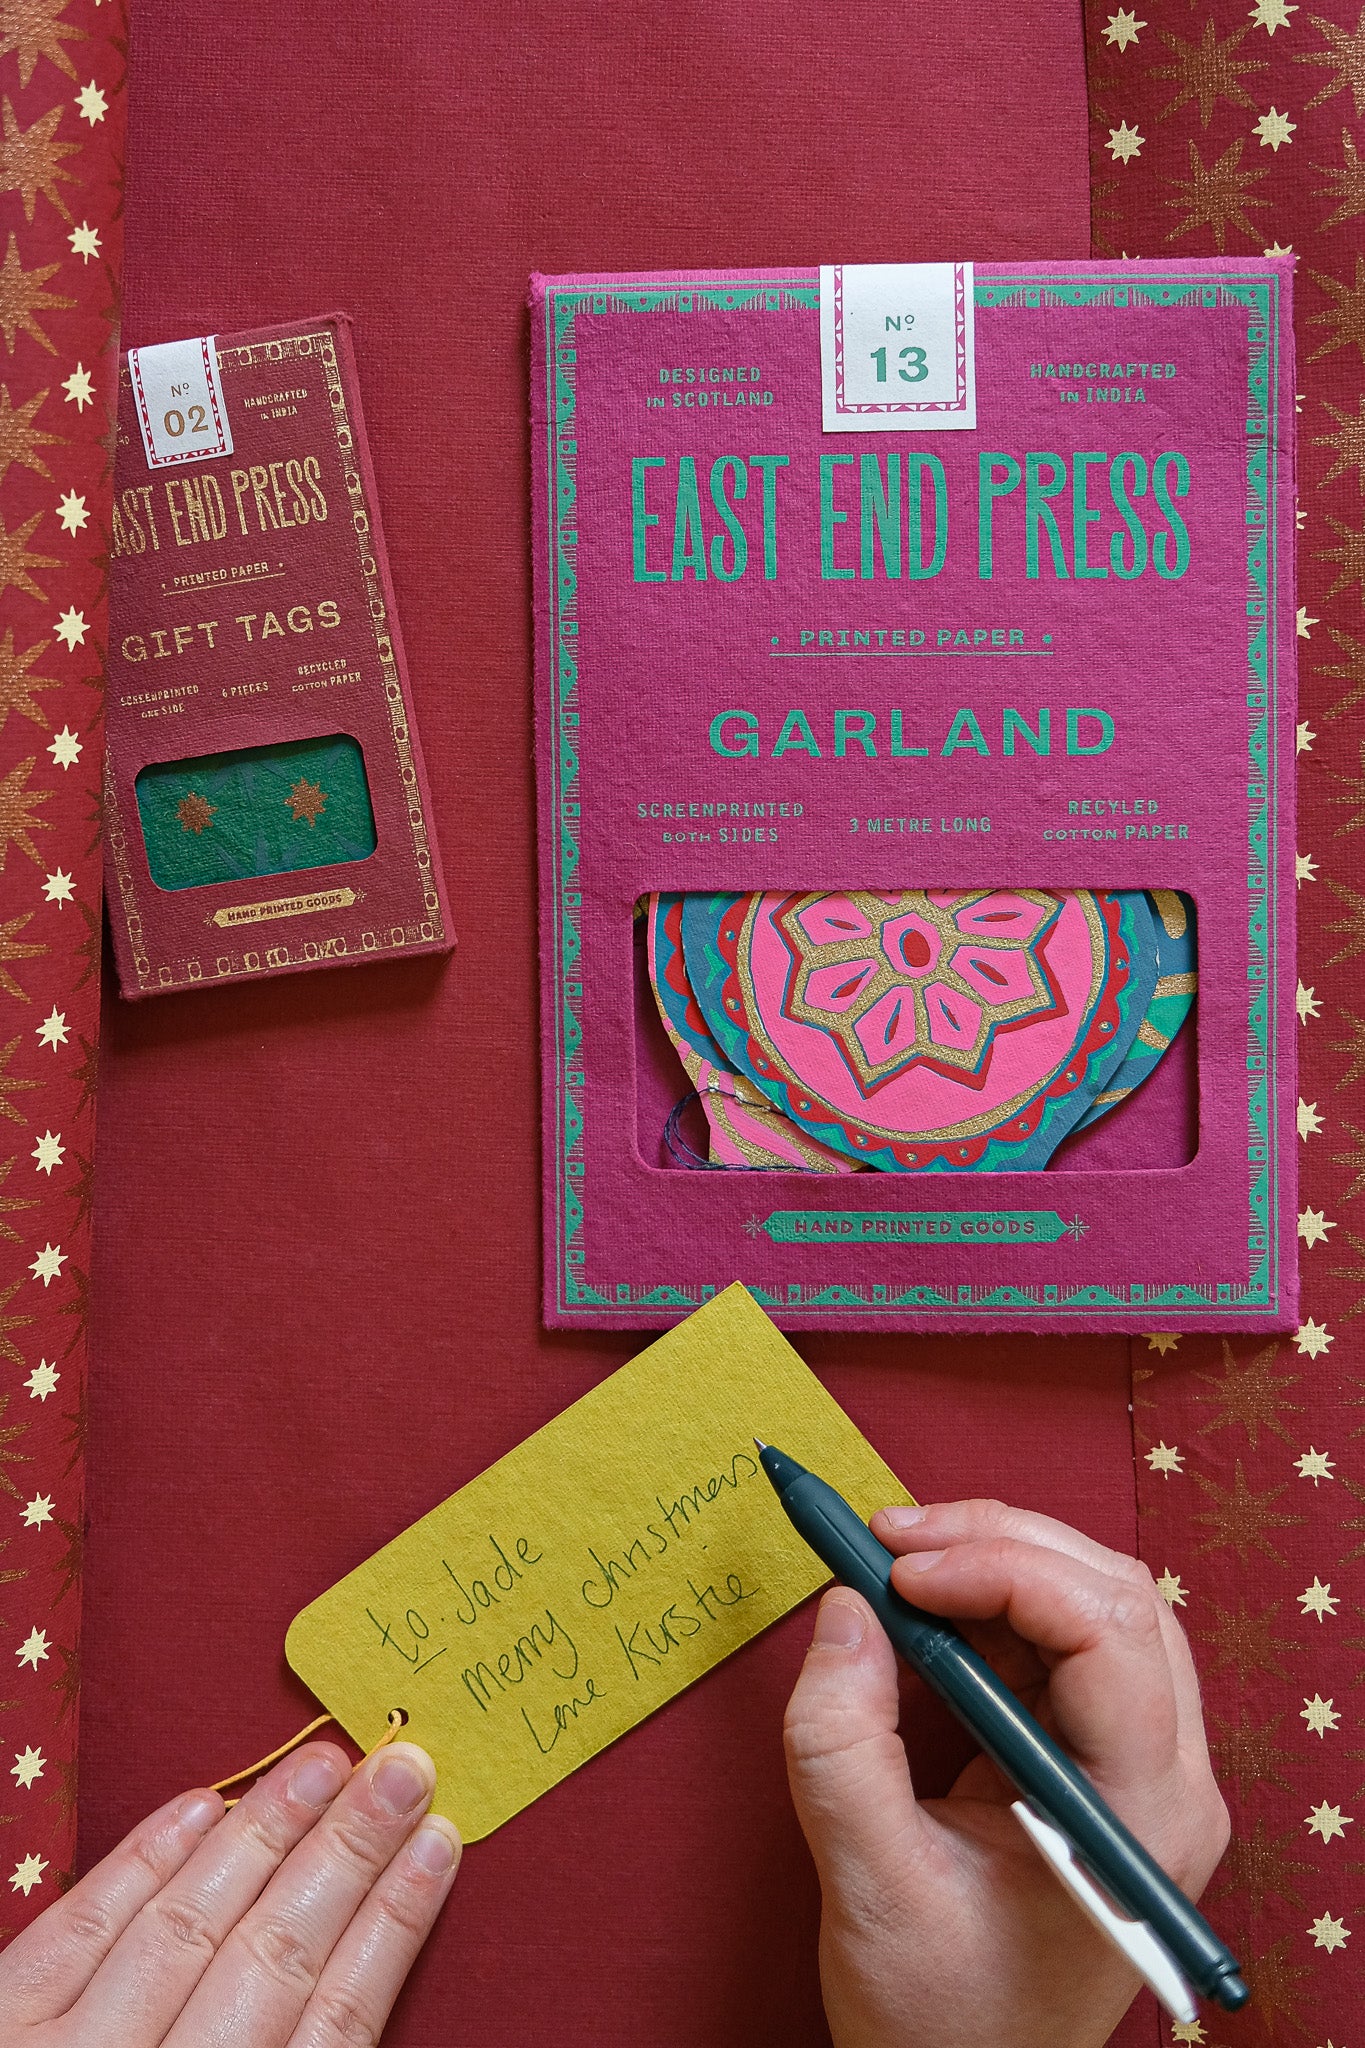 Nº
02
HANDCRAFTED
IN INDIA
EAST END PRESS
• PRINTED PAPER •
GIFT TAGS
SCREENPRINTED
ONE SIDE
6 PIECES
RECYCLED
COTTON PAPER
HAND PRINTED GOODS
Nº
13
DESIGNED
IN SCOTLAND
HANDCRAFTED
IN INDIA
EAST END PRESS
• PRINTED PAPER •
GARLAND
SCREENPRINTED
BOTH SIDES
3 METRE LONG
RECYLED
COTTON PAPER
HAND PRINTED GOODS
to Jade
merry christmas
Love Kirstie